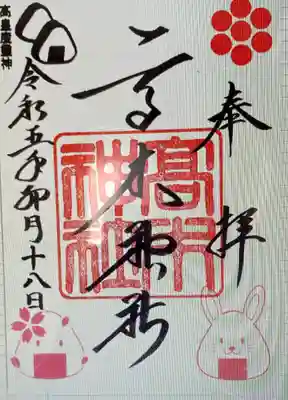 奉拝
高木神社
高木
神社
令和五年卯月十八日
高皇産靈神